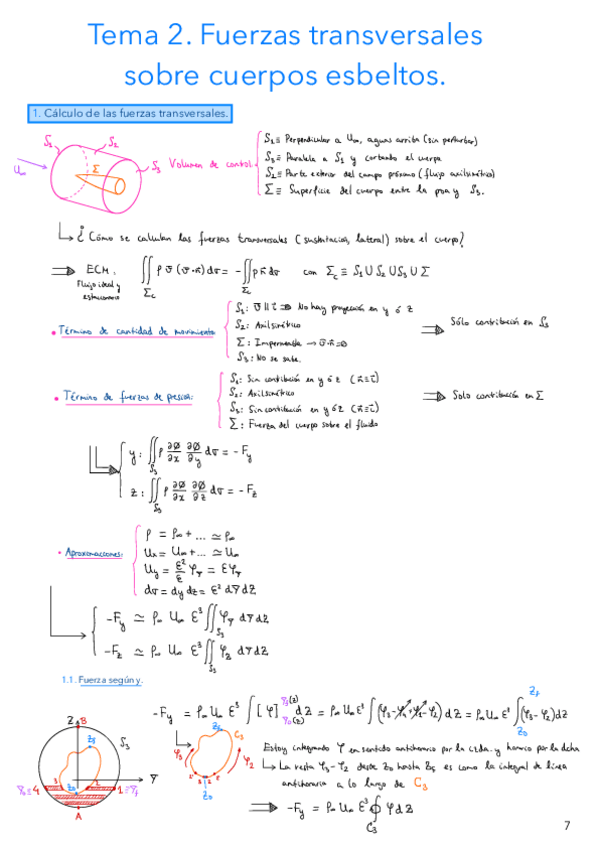 Tema 2. Fuerzas transversales
sobre cuerpos esbeltos.
1. Cálculo de las fuerzas transversales.
S₁ S₂ S₃ Σ U∞
Volumen de control:
S₁ ≡ Perpendicular a U∞, aguas arriba (sin perturbar)
S₃ ≡ Paralela a S₁ y cortando el cuerpo
S₂ ≡ Parte exterior del campo próximo (flujo axilsimétrico)
Σ ≡ Superficie del cuerpo entre la proa y S₃.
¿Cómo se calculan las fuerzas transversales (sustentación, lateral) sobre el cuerpo?
ECM. ∬ ρ v̄ (v̄·n̄) dσ = -∬ p n̄ dσ con Σc ≡ S₁ U S₂ U S₃ U Σ
Flujo ideal y
estacionario
Σc Σc
• Término de cantidad de movimiento:
S₁: v̄ || ī ⇒ No hay proyección en y ó z
S₂: Axilsimétrico
Σ: Impermeable → v̄·n̄=0
S₃: No se sabe.
Sólo contribución en S₃
• Término de fuerzas de presión:
S₁: Sin contribución en y ó z (n̄≡ī)
S₂: Axilsimétrico
S₃: Sin contribución en y ó z (n̄≡ī)
Σ: Fuerza del cuerpo sobre el fluido
Solo contribución en Σ
y: ∬S₃ ρ ∂Ø/∂x ∂Ø/∂y dσ = -Fy
z: ∬S₃ ρ ∂Ø/∂x ∂Ø/∂z dσ = -Fz
• Aproximaciones:
ρ = ρ∞ + ... ≃ ρ∞
Ux = U∞ + ... ≃ U∞
Uy = ε²/ε φY = εφY
dσ = dy dz = ε² dY dZ
-Fy ≃ ρ∞ U∞ ε³ ∬S₃ φY dY dZ
-Fz ≃ ρ∞ U∞ ε³ ∬S₃ φZ dY dZ
1.1. Fuerza según y.
-Fy = ρ∞ U∞ ε³ ∫ [φ] dZ = ρ∞ U∞ ε³ ∫(φ₃-φ₄+φ₁-φ₂) dZ = ρ∞ U∞ ε³ ∫(φ₃-φ₂) dZ
Estoy integrando φ en sentido antihorario por la izda. y horario por la dcha
La resta φ₃-φ₂ desde Z₀ hasta Zf es como la integral de línea
antihoraria a lo largo de C₃
-Fy = ρ∞ U∞ ε³ ∮C₃ φ dZ
7